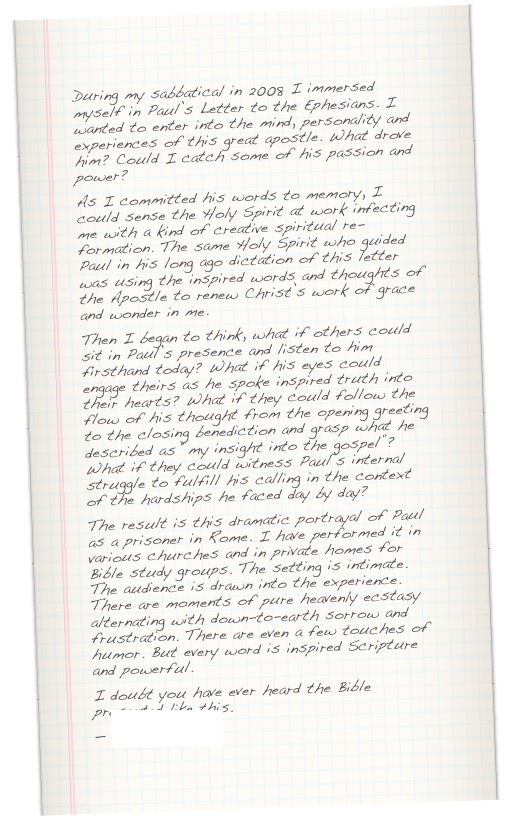 During my sabbatical in 2008 I immersed
myself in Paul's Letter to the Ephesians. I
wanted to enter into the mind, personality and
experiences of this great apostle. What drove
him? Could I catch some of his passion and
power?
As I committed his words to memory, I
could sense the Holy Spirit at work infecting
me with a kind of creative spiritual re-
formation. The same Holy Spirit who guided
Paul in his long ago dictation of this letter
was using the inspired words and thoughts of
the Apostle to renew Christ's work of grace
and wonder in me.
Then I began to think, what if others could
sit in Paul's presence and listen to him
firsthand today? What if his eyes could
engage theirs as he spoke inspired truth into
their hearts? What if they could follow the
flow of his thought from the opening greeting
to the closing benediction and grasp what he
described as "my insight into the gospel"?
What if they could witness Paul's internal
struggle to fulfill his calling in the context
of the hardships he faced day by day?
The result is this dramatic portrayal of Paul
as a prisoner in Rome. I have performed it in
various churches and in private homes for
Bible study groups. The setting is intimate.
The audience is drawn into the experience.
There are moments of pure heavenly ecstasy
alternating with down-to-earth sorrow and
frustration. There are even a few touches of
humor. But every word is inspired Scripture
and powerful.
I doubt you have ever heard the Bible
presented like this.
—